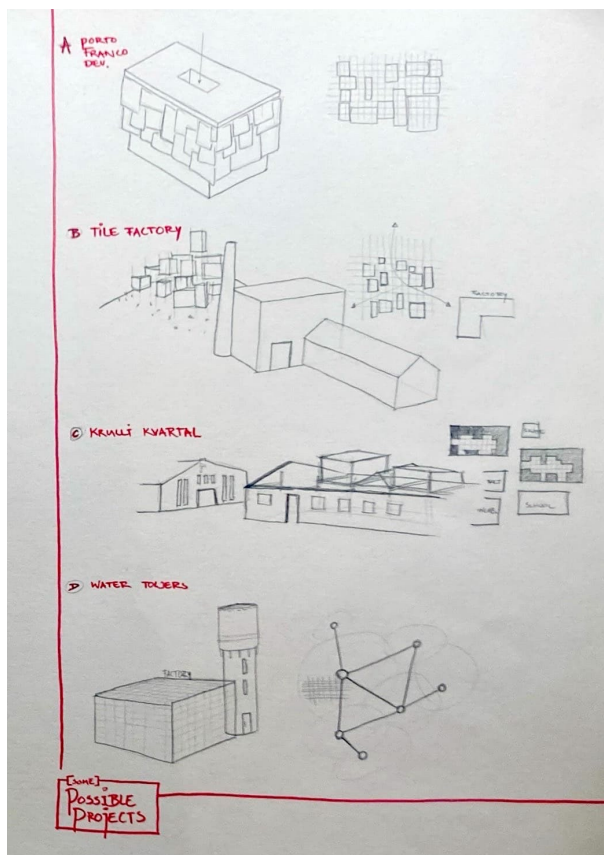 A PORTO
FRANCO
DEV.
B TILE FACTORY
FACTORY
C KRULLI KVARTAL
SCHOOL
D WATER TOWERS
FACTORY
[SOME]
POSSIBLE
PROJECTS